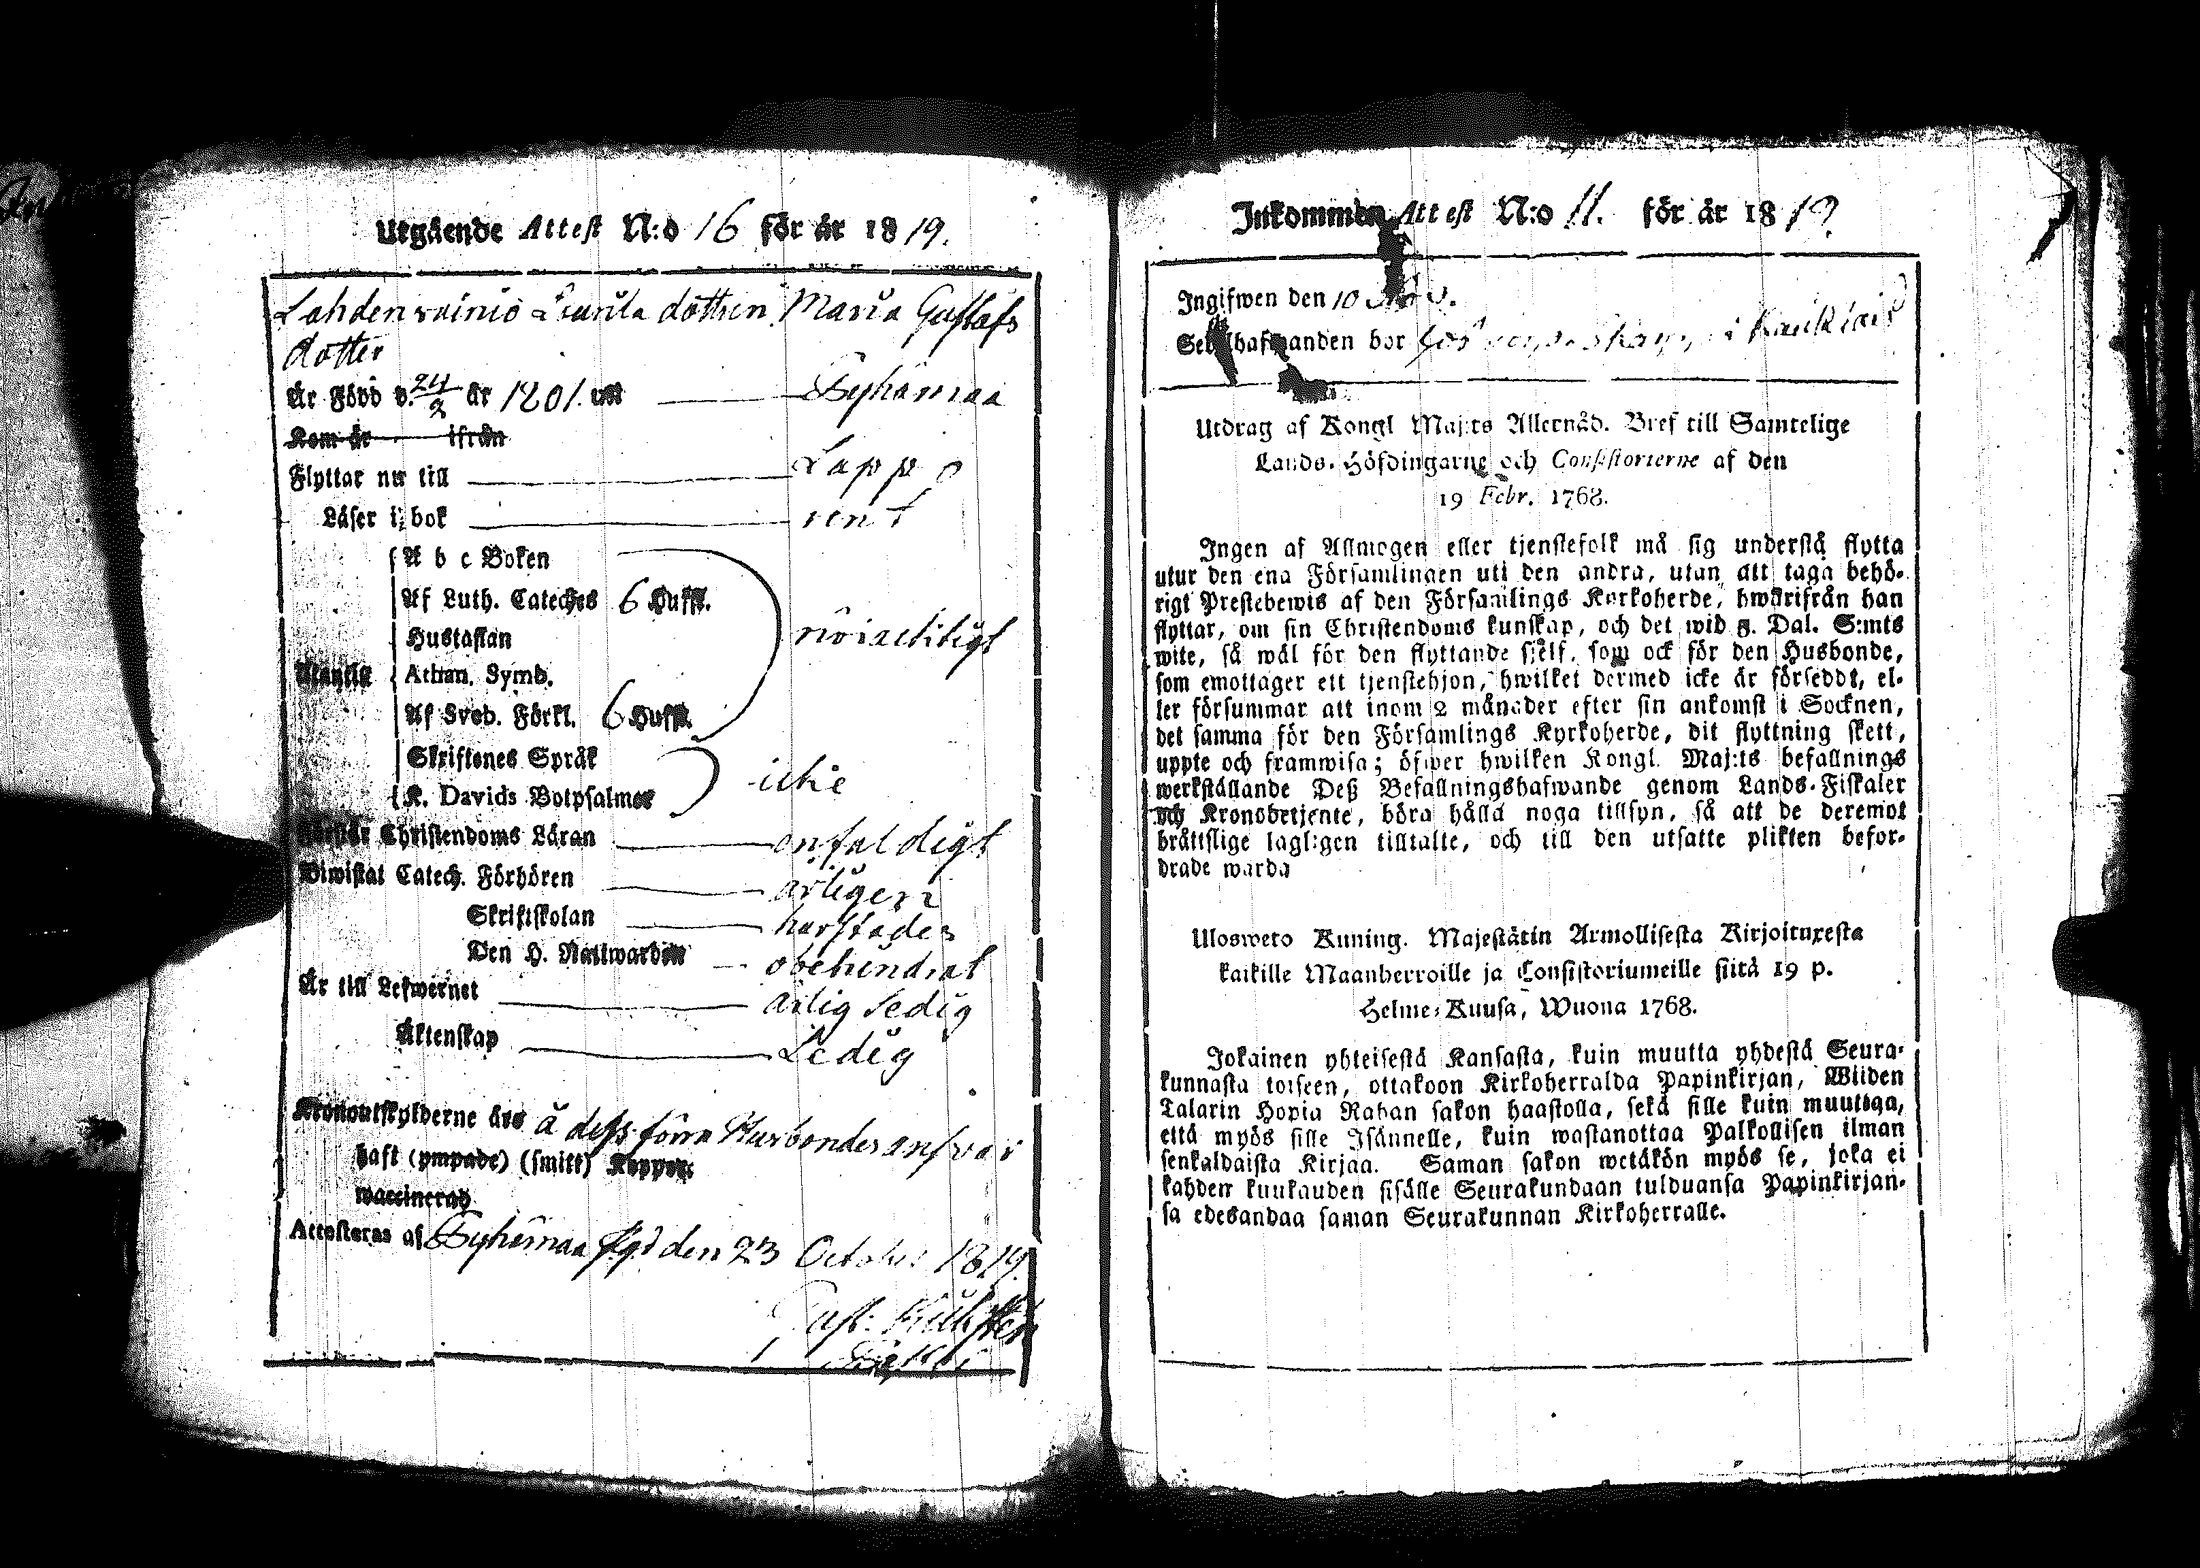 Utgående Attest N:o 16 för år 1819.
Lahdenvainio dottren Maria Gustafs
dotter
Är Född d. 24/2 år 1801. uti Pyhämaa
Kom år ifrån
Flyttar nu till Lappo
Läser i bok rent
A b c Boken
Af Luth. Cateches 6 Hufst.
Hustaflan
Utantil Athan. Symb.
Af Sveb. Förkl. 6 Hufst.
Skriftenes Språk
K. Davids Botpsalmer icke
Förstår Christendoms Läran enfaldigt
Biwistat Catech. Förhören årligen
Skriftskolan härstädes
Den H. Nattwarden obehindrat
Är till Lefwernet ärlig sedig
Äktenskap Ledig
Kronoutskylderne års à dess förra Husbondes answar
haft (ympade) (smitt) Koppor
waccinerad
Attesteras af Pyhämaa den 23 October 1819.
Gust.
Inkommen Attest N:o 11. för år 1819
Ingifwen den 10
Sedelhafwanden bor hos i Kauklais
Utdrag af Kongl Maj:ts Allernåd. Bref till Samtelige
Lands-Höfdingarne och Consistorierne af den
19 Febr. 1768.
Ingen af Allmogen eller tjenstefolk må sig understå flytta
utur den ena Församlingen uti den andra, utan att taga behö-
rigt Prestebewis af den Församlings Kyrkoherde, hwarifrån han
flyttar, om sin Christendoms kunskap, och det wid 5. Dal. S:mts
wite, så wäl för den flyttande sjelf, som ock för den Husbonde,
som emottager ett tjenstehjon, hwilket dermed icke är förseddt, el-
ler försummar att inom 2 månader efter sin ankomst i Socknen,
det samma för den Församlings Kyrkoherde, dit flyttning skett,
uppte och framwisa; öfwer hwilken Kongl. Maj:ts befallnings
werkställande Deß Befallningshafwande genom Lands-Fiskaler
och Kronobetjente, böra hålla noga tillsyn, så att de deremot
bråttslige lagligen tilltalte, och till den utsatte plikten befor-
drade warda
Ulosweto Kuning. Majestätin Armollisesta Kirjoituxesta
kaikille Maanherroille ja Consistoriumeille siitä 19 p.
Helme-Kuusa, Wuona 1768.
Jokainen yhteisestä Kansasta, kuin muutta yhdestä Seura-
kunnasta toiseen, ottakoon Kirkoherralda Papinkirjan, Wiiden
Talarin Hopia Rahan sakon haastolla, sekä sille kuin muuttaa,
että myös sille Isännelle, kuin wastanottaa Palkollisen ilman
senkaldaista Kirjaa. Saman sakon wetäkön myös se, joka ei
kahden kuukauden sisälle Seurakundaan tulduansa Papinkirjan-
sa edesandaa saman Seurakunnan Kirkoherralle.